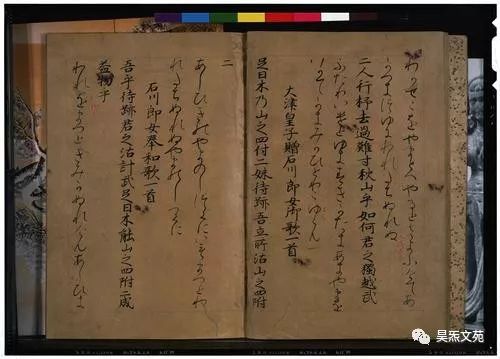 わかせこをやまとへやるとさよふけてあ
かつきつゆにわれたちぬれぬ
二人行杼去過難寸秋山乎如何君之獨越武
大津皇子贈石川郎女御歌一首
足日木乃山之四付二妹待跡吾立所沾山之四附
二
あしひきのやまのしつくにいもまつとわ
れたちぬれぬやまのしつくに
石川郎女奉和歌一首
吾乎待跡君之沾計武足日木能山之四附二成
益物乎
われをまつときみかぬれけんあしひき
昊炁文苑